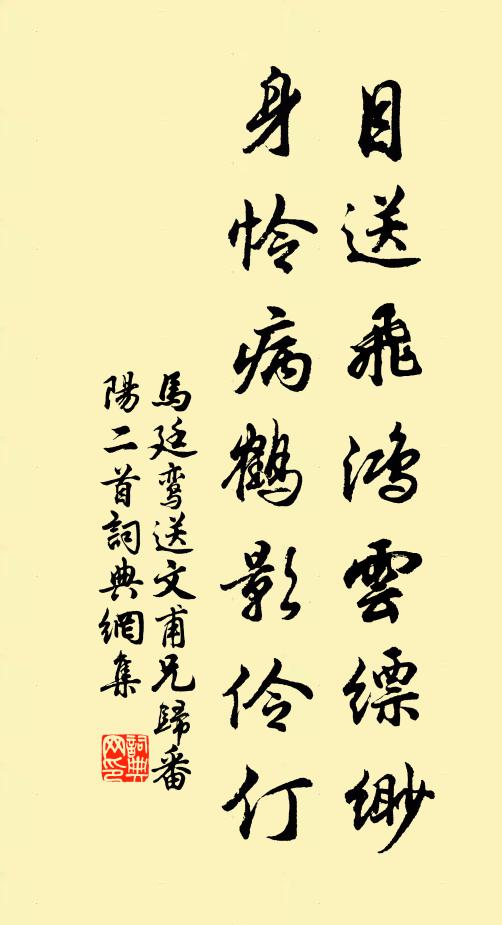 目送飛鴻雲縹緲
身怜病鶴影伶仃
馬廷鸞送文甫兄歸番
陽二首詞典網集
詞典
网印